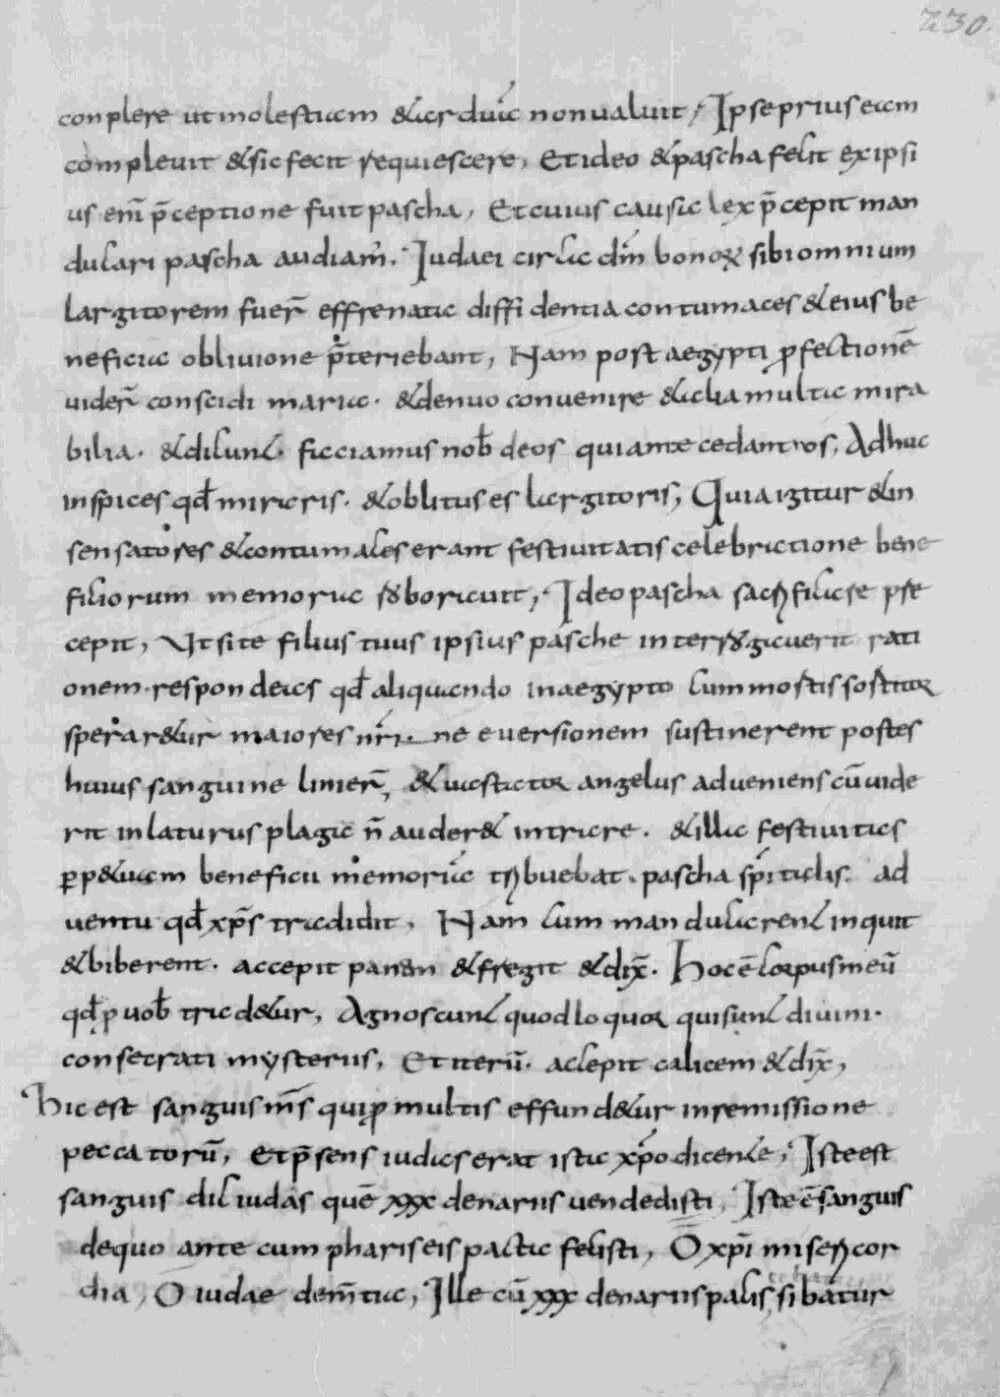 230.
conplere ut molestiam & arduā non ualuit, Ipse prius eam
compleuit & sic fecit requiescere, Et ideo & pascha fecit ex ipsi
us enī p̄ceptione fuit pascha, Et cuius causa lex p̄cepit man
ducari pascha audiam̄, Iudaei circa dm̄ bonoꝝ sibi omnium
largitorem fuer̄ effrenata diffidentia contumaces & eius be
neficia obliuione p̄teriebant, Nam post aegypti ꝓfectionē
uider̄ conscidi maria. & denuo conuenire & alia multa mira
bilia. & dicunt. faciamus nob̄ deos qui antecedant nos, Adhuc
inspices qđ miraris. & oblitus es largitoris, Quia igitur & in
sensatores & contumaces erant festiuitatis celebratione bene
ficiorum memoria roboauit, Ideo pascha sacrificare pre
cepit, Ut si te filius tuus ipsius pasche interrogauerit rati
onem. respondeas qđ aliquando in aegypto cum mortis sortitor
sperar&ur maiores nr̄i. ne euersionem sustinerent postes
huius sanguine linier̄, & uastator angelus adueniens cū uide
rit inlaturus plagā n̄ auder& intrare. & illa festiuitas
ꝑp&uam beneficii memoriā tribuebat. pascha sp̄italis. ad
uentu qđ xp̄s tradidit, Nam cum manducarent inquit
& biberent. accepit panem & fregit & dix̄. Hoc ē corpus meū
qđ ꝓ uob̄ trad&ur, Agnoscunt quod loquor qui sunt diuini.
consecrati mysteriis, Et iterū. accepit calicem & dix̄,
Hic est sanguis m̄s qui ꝓ multis effund&ur in remissione
peccatorū, Et p̄sens iudas erat ista xp̄o dicente, Iste est
sanguis dic iudas quē xxx denariis uendedisti, Iste ē sanguis
de quo ante cum phariseis pacta fecisti, O xp̄i misericor
dia, O iudae dem̄tia, Ille cū xxx denariis paciscibatur